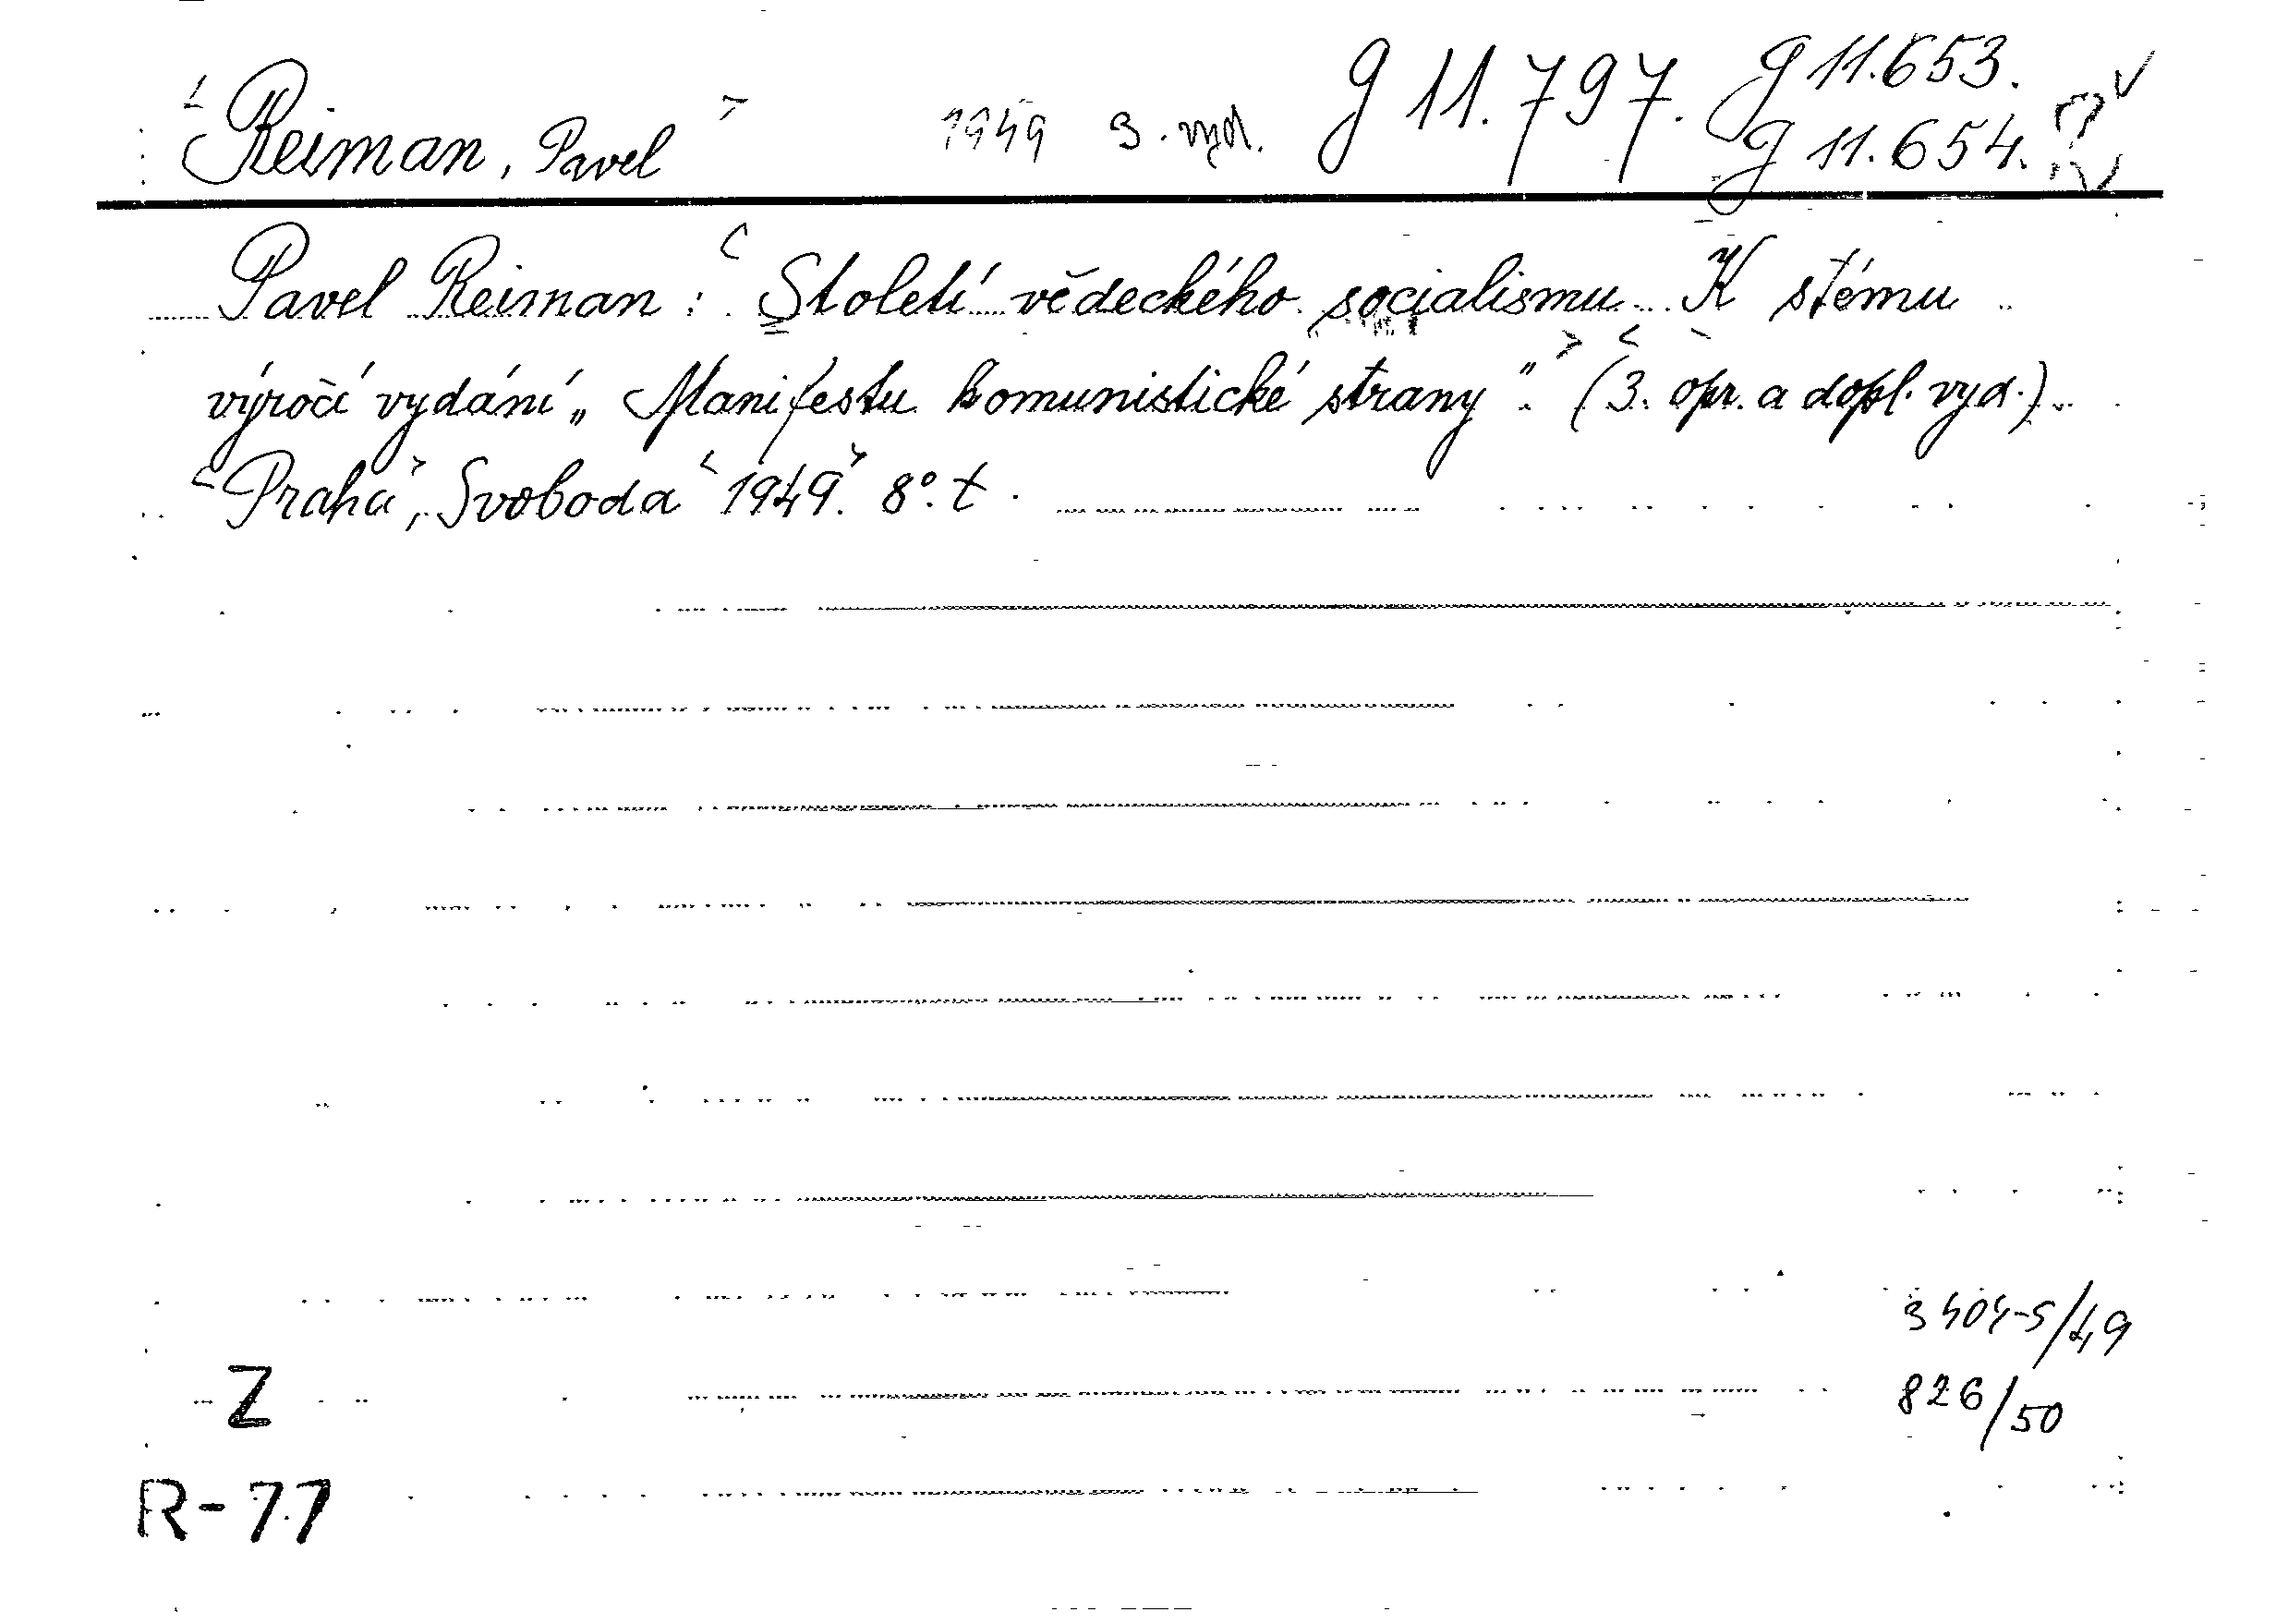 Reiman, Pavel 1949 3. vyd. g 11.797. g 11.653.
g 11.654.
Pavel Reiman: Století vědeckého socialismu. K stému
výročí vydání „Manifestu komunistické strany". (3. opr. a dopl. vyd.).
Praha, Svoboda 1949. 8°. t.
3404-5/49
Z
826/50
R-77